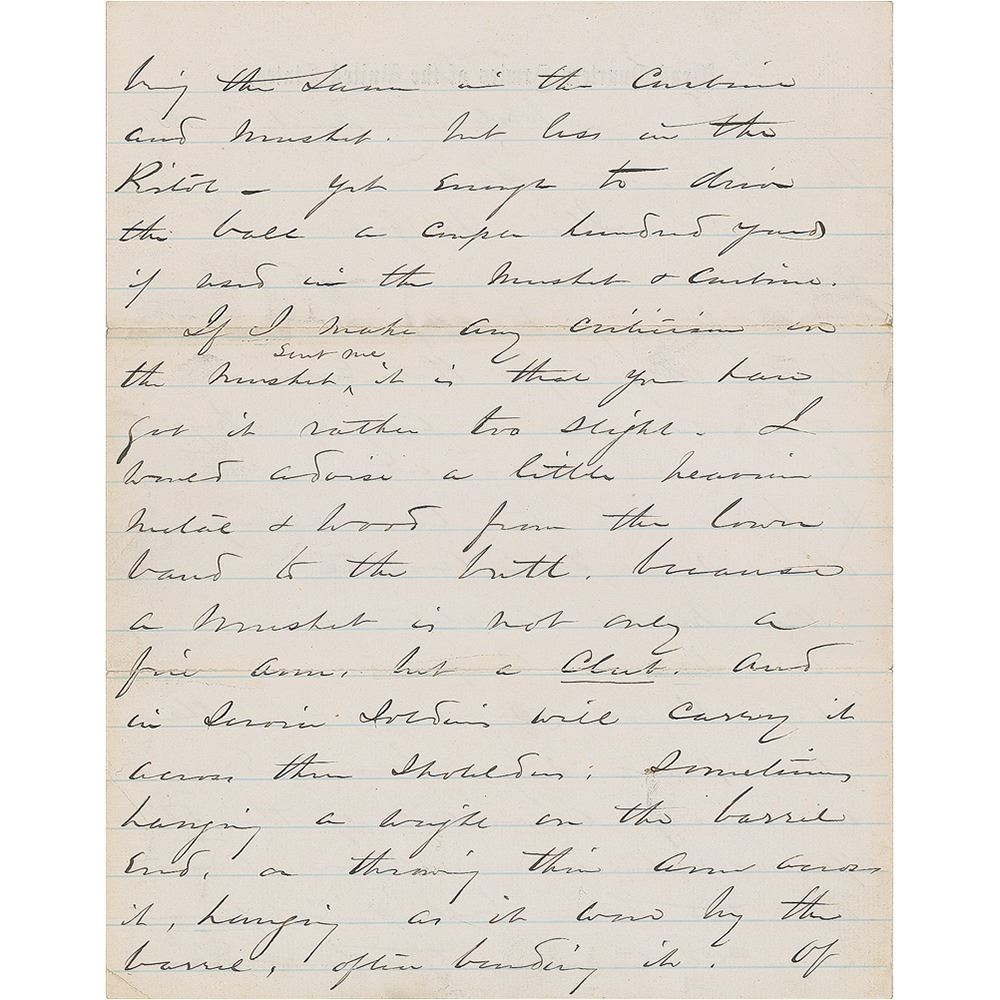 being the Same in the Carbine
and Musket. but less in the
Pistol - yet enough to drive
the ball a couple hundred yards
if used in the Musket & Carbine.
If I make any criticism on
the Musket, sent me it is that you have
got it rather too slight. I
would advise a little heavier
metal & wood from the lower
band to the butt. because
a Musket is not only a
fire arm, but a Club. and
in Service Soldiers will carry it
across their Shoulders; Sometimes
hanging a weight on the barrel
End, or throwing their arm across
it, hanging as it were by the
barrel, often bending it. Of